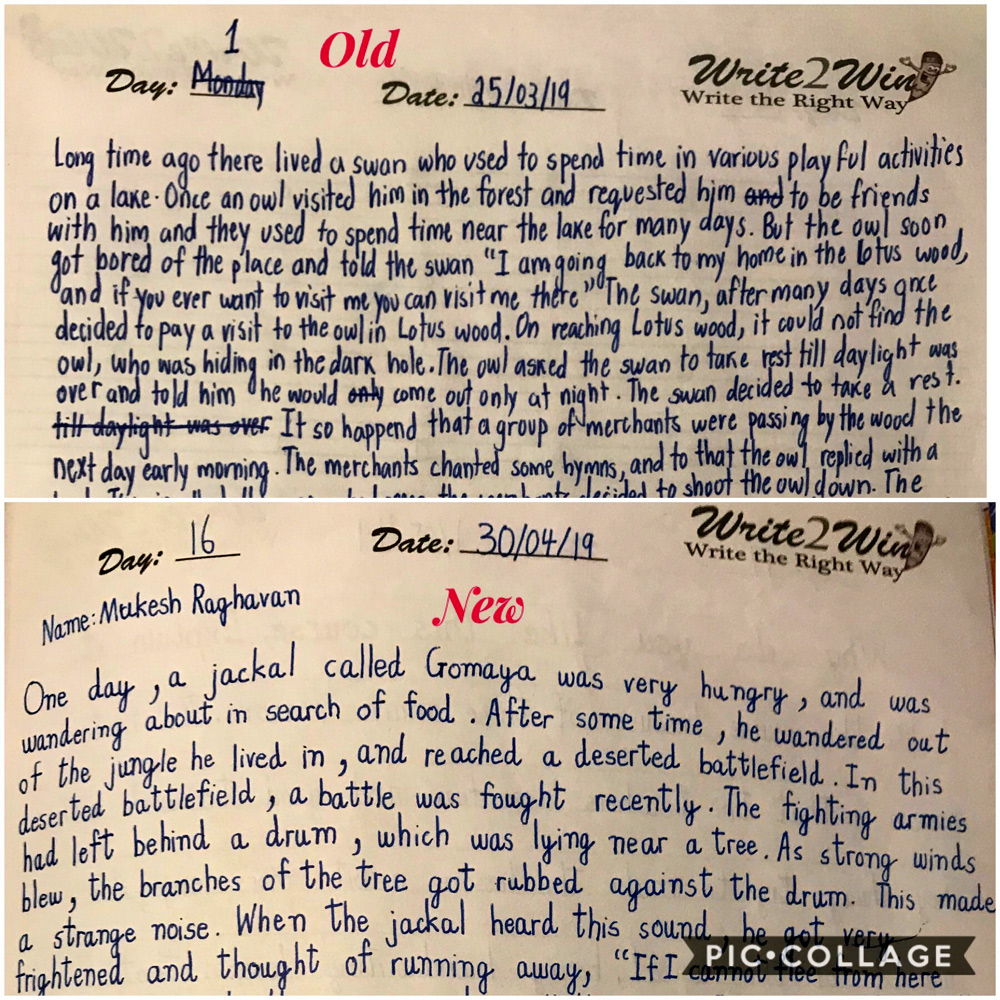 1
Old
Day: Monday Date: 25/03/19
Write2Win
Write the Right Way
Long time ago there lived a swan who used to spend time in various playful activities
on a lake. Once an owl visited him in the forest and requested him and to be friends
with him and they used to spend time near the lake for many days. But the owl soon
got bored of the place and told the swan "I am going back to my home in the lotus wood,
and if you ever want to visit me you can visit me there" The swan, after many days once
decided to pay a visit to the owl in Lotus wood. On reaching Lotus wood, it could not find the
owl, who was hiding in the dark hole. The owl asked the swan to take rest till daylight was
over and told him he would only come out only at night. The swan decided to take a rest.
till daylight was over It so happend that a group of merchants were passing by the wood the
next day early morning. The merchants chanted some hymns, and to that the owl replied with a
the merchants decided to shoot the owl down. The
Day: 16 Date: 30/04/19
Write2Win
Write the Right Way
Name: Mukesh Raghavan
New
One day, a jackal called Gomaya was very hungry, and was
wandering about in search of food. After some time, he wandered out
of the jungle he lived in, and reached a deserted battlefield. In this
deserted battlefield, a battle was fought recently. The fighting armies
had left behind a drum, which was lying near a tree. As strong winds
blew, the branches of the tree got rubbed against the drum. This made
a strange noise. When the jackal heard this sound, he got very
frightened and thought of running away, "If I cannot flee from here
PIC•COLLAGE